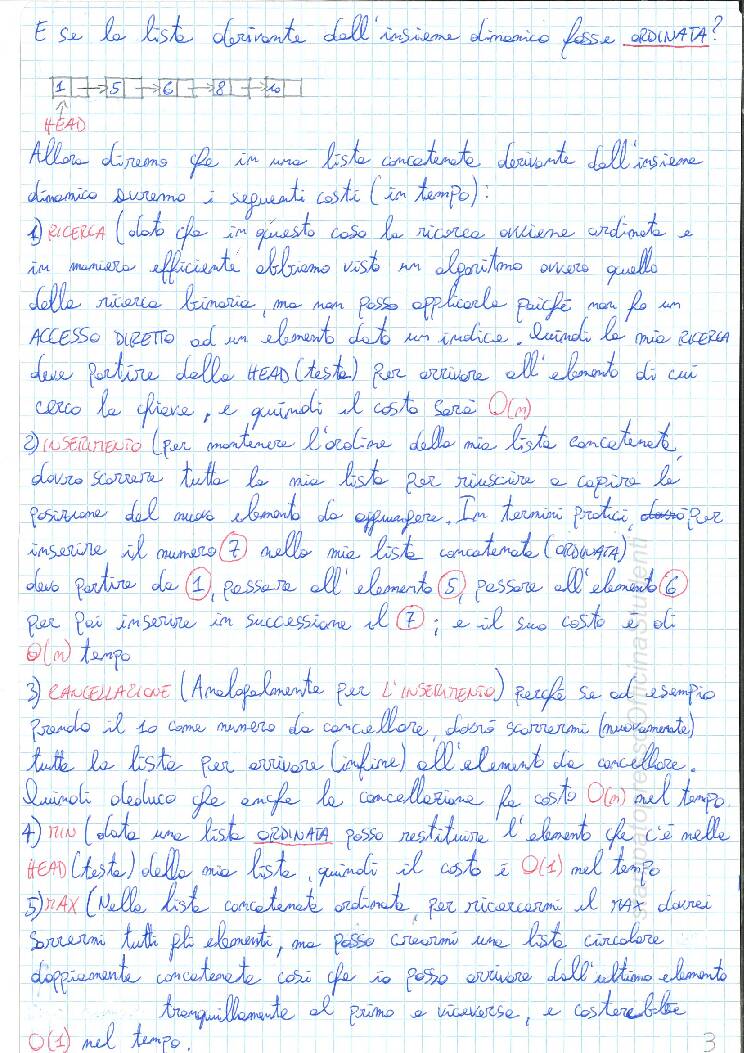 E se la lista derivante dall'insieme dinamico fosse ORDINATA?
1 5 6 8 10
HEAD
Allora diremo che in una lista concatenata derivante dall'insieme
dinamico avremo i seguenti costi (in tempo):
1) RICERCA (dato che in questo caso la ricerca avviene ordinata e
in maniera efficiente abbiamo visto un algoritmo ovvero quello
della ricerca binaria, ma non posso applicarla poiché non ho un
ACCESSO DIRETTO ad un elemento dato un indice. Quindi la mia RICERCA
deve partire dalla HEAD (testa) per arrivare all'elemento di cui
cerco la chiave, e quindi il costo sarà O(n)
2) INSERIMENTO (per mantenere l'ordine della mia lista concatenata,
dovrò scorrere tutta la mia lista per riuscire a capire la
posizione del nuovo elemento da aggiungere. In termini pratici, dovrò per
inserire il numero 7 nella mia lista concatenata (ORDINATA)
devo partire da 1, passare all'elemento 5, passare all'elemento 6
per poi inserire in successione il 7; e il suo costo è di
O(n) tempo
3) CANCELLAZIONE (Analogalmente per L'INSERIMENTO) perché se ad esempio
prendo il 10 come numero da cancellare, dovrò scorrermi (nuovamente)
tutta la lista per arrivare (infine) all'elemento da cancellare.
Quindi deduco che anche la cancellazione ha costo O(n) nel tempo.
4) MIN (data una lista ORDINATA posso restituire l'elemento che c'è nella
HEAD (testa) della mia lista, quindi il costo è O(1) nel tempo
5) MAX (Nella lista concatenata ordinata, per ricercarmi il MAX dovrei
scorrermi tutti gli elementi, ma posso crearmi una lista circolare
doppiamente concatenata così che io posso arrivare dall'ultimo elemento
tranquillamente al primo e viceversa, e costerebbe
O(1) nel tempo.
3